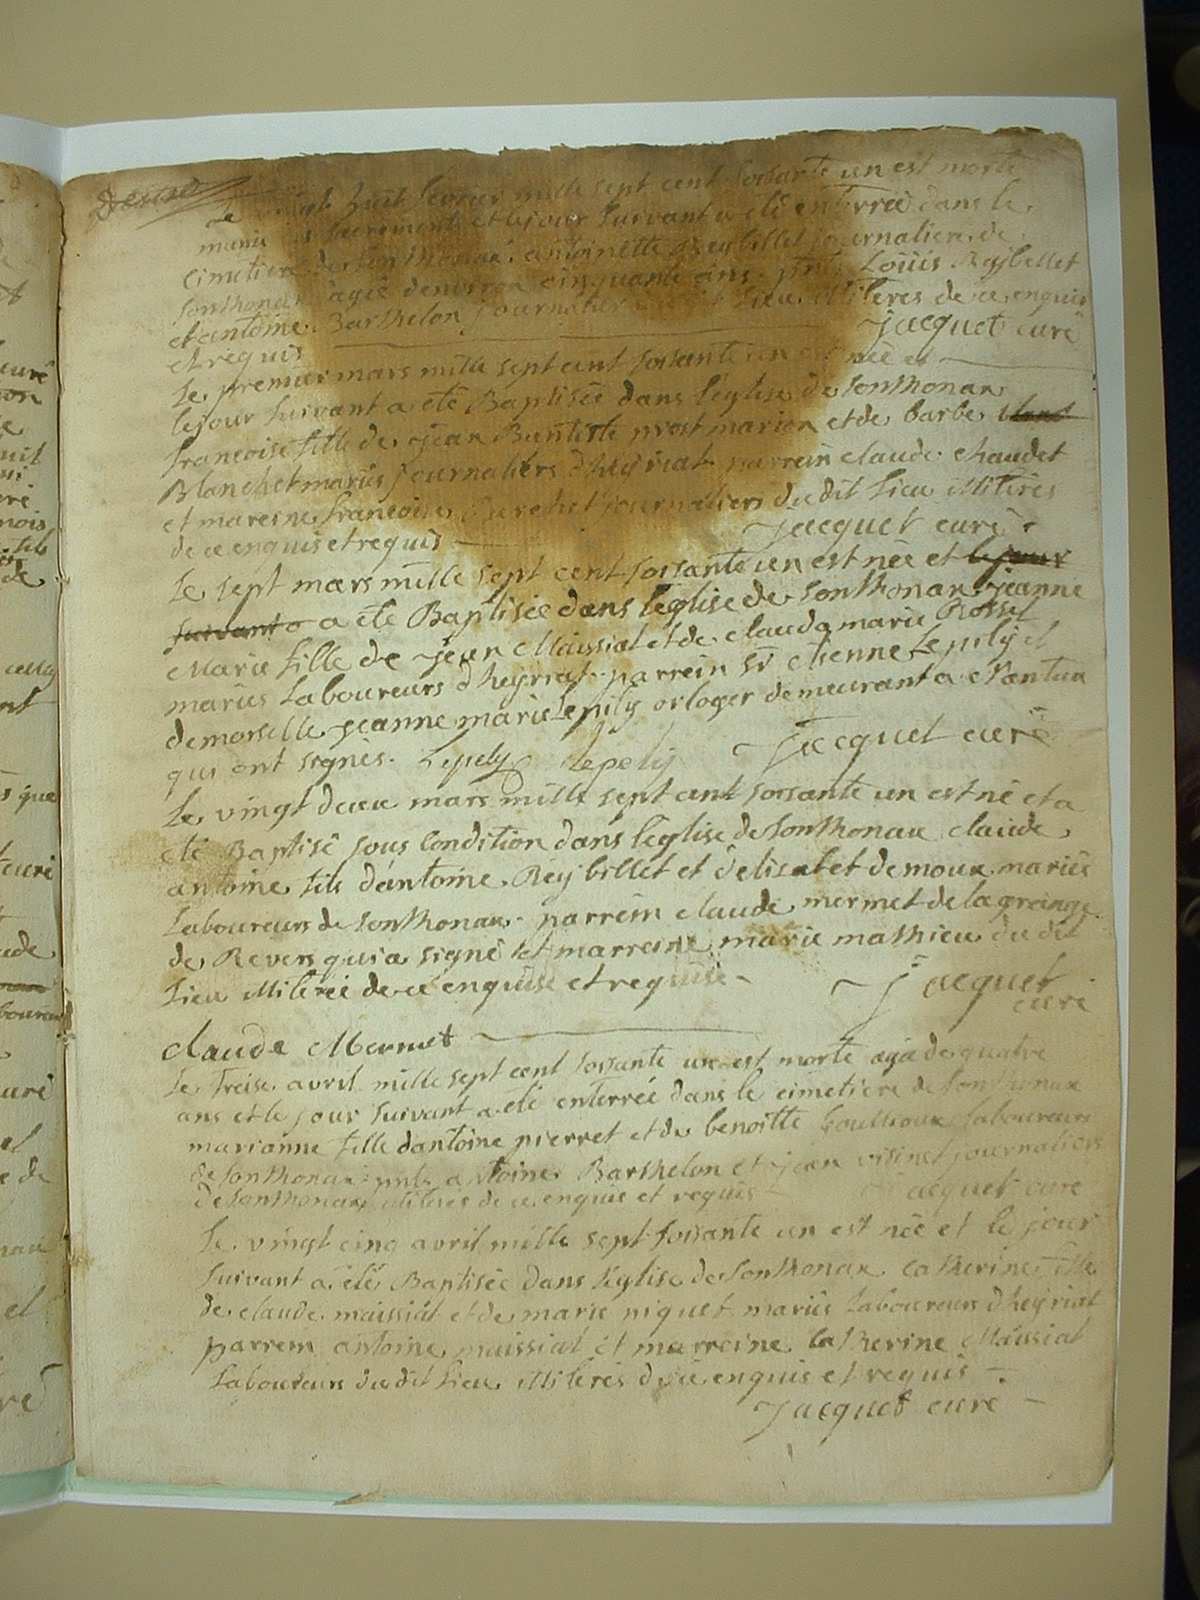 Le vingt huit fevrier mille sept cent soisante un est morte
munie des sacrements et le jour suivant a eté enterrée dans le
cimetiere de Sonthonax antoinette Reybillet journaliere de
Sonthonax agée denviron cinquante ans. pnts Loüis Reybellet
et antoine Barthelon journalier dudit Lieu illiteres de ce enquis
et requis Jacquet curé
Le premier mars mille sept cent soisante un est née et
le jour suivant a eté Baptisée dans l'eglise de Sonthonax
francoise fille de jean Baptiste prost marion et de barbe
Blanchet mariés journaliers d'heyriat parrein claude chaudet
et mareine francoise journaliers du dit Lieu illiteres
de ce enquis et requis Jacquet curé
Le sept mars mille sept cent soissante un est née et le jour
suivant a eté Baptisée dans l'eglise de Sonthonax jeanne
Marie fille de jean Maissiat et de clauda marie Rosset
mariés Laboureurs d'heyriat parrein Sr etienne Lepely et
demoiselle jeanne marie Lepely orloger demeurant a Nantua
qui ont signés. Lepely Lepely Jacquet curé
Le vingt deux mars mille sept cent soissante un est né et a
eté Baptisé sous condition dans l'eglise de Sonthonax claude
antoine fils d'antoine Reybillet et d'elisabet demoux mariés
Laboureurs de Sonthonax. parrein claude mermet de la grange
de Revers qui a signé et marreine marie mathieu du dit
Lieu illiterée de ce enquise et requise Jacquet
curé
claude Mermet
Le Treise avril mille sept cent soissante un est morte agée de quatre
ans et le jour suivant a eté enterrée dans le cimetiere de Sonthonax
marianne fille d'antoine pierret et de benoitte Laboureurs
de Sonthonax pnts antoine Barthelon et jean visinet journaliers
de Sonthonax illiteres de ce enquis et requis Jacquet curé
Le vingt cinq avril mille sept soissante un est née et le jour
suivant a eté Baptisée dans l'eglise de Sonthonax catherine fille
de claude maissiat et de marie niquet mariés Laboureurs d'heyriat
parrein antoine maissiat et marreine catherine Maissiat
Laboureurs du dit Lieu illiterés de ce enquis et requis
Jacquet curé